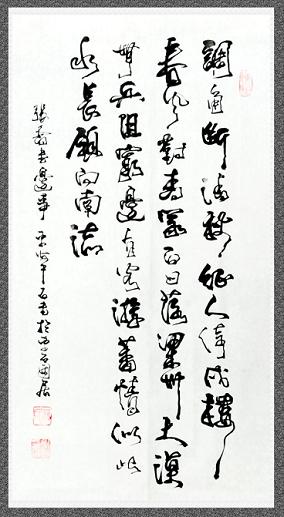 調角斷清秋征人倚戍樓
春風對青冢白日落梁州大漠
無兵阻窮邊有客遊蕃情似此
水長願向南流
張喬書邊事